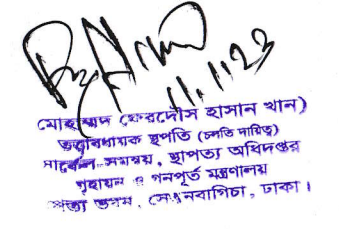 11.1.23
মোহাম্মদ ফেরদৌস হাসান খান)
তত্ত্বাবধায়ক স্থপতি (চলতি দায়িত্ব)
সার্কেল-সমন্বয়, স্থাপত্য অধিদপ্তর
গৃহায়ন ও গনপূর্ত মন্ত্রণালয়
স্থাপত্য ভবন, সেগুনবাগিচা, ঢাকা।